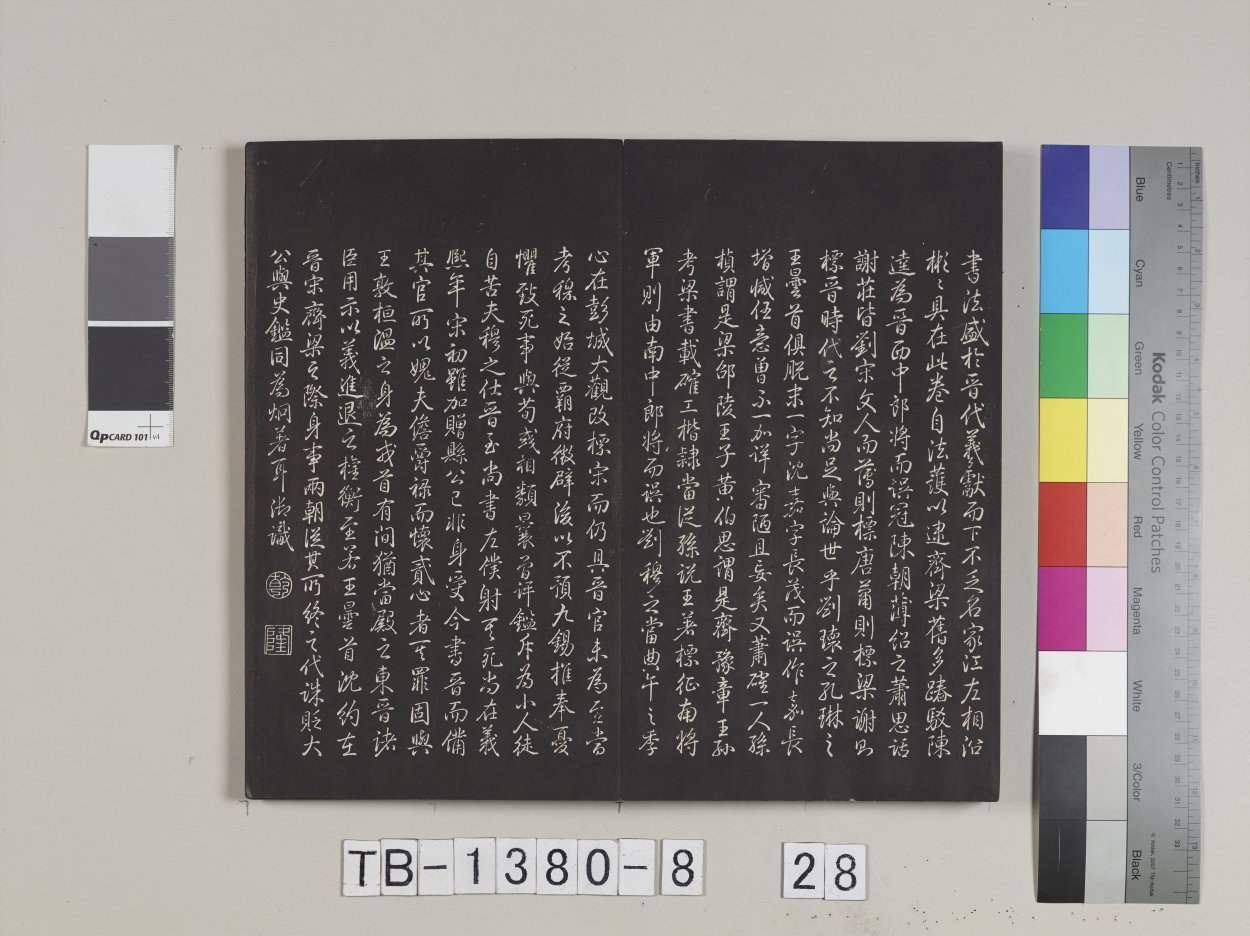 書法盛於晉代羲獻而下不乏名家江左相沿
彬彬具在此卷自法護以逮齊梁舊多踳駮陳
逵為晉西中郎將而誤冠陳朝薄紹之蕭思話
謝莊皆劉宋文人而薄則標唐蕭則標梁謝則
標晉時代之不知尚足與論世乎劉瓌之孔琳之
王曇首俱脫末一字沈嘉字長茂而誤作嘉長
增減任意曾不一加詳審陋且妄矣又蕭確一人孫
楨謂是梁邵陵王子黃伯思謂是齊豫章王孫
考梁書載確工楷隸當從孫說王著標征南將
軍則由南中郎將而誤也劉穆之當典午之季
心在彭城大觀改標宋而仍具晉官未為至當
考穆之始從霸府徵辟後以不預九錫推奉憂
懼致死事與荀彧相類曩曾評鑑斥為小人徒
自苦夫穆之仕晉至尚書左僕射其死尚在義
熙年宋初雖加贈縣公已非身受今書晉而備
其官所以媿夫儋爵祿而懷貳心者其罪固與
王敦桓溫之身為戎首有間猶當殿之東晉諸
臣用示以義進退之權衡至若王曇首沈約在
晉宋齊梁之際身事兩朝從其所終之代誅貶大
公與史鑑同為炯著耳御識
乾
隆
Qp CARD 101 v4
Kodak Color Control Patches
Blue
Cyan
Green
Yellow
Red
Magenta
White
3/Color
Black
Inches
Centimetres
© Kodak, 2007 TM: Kodak
TB-1380-8 28